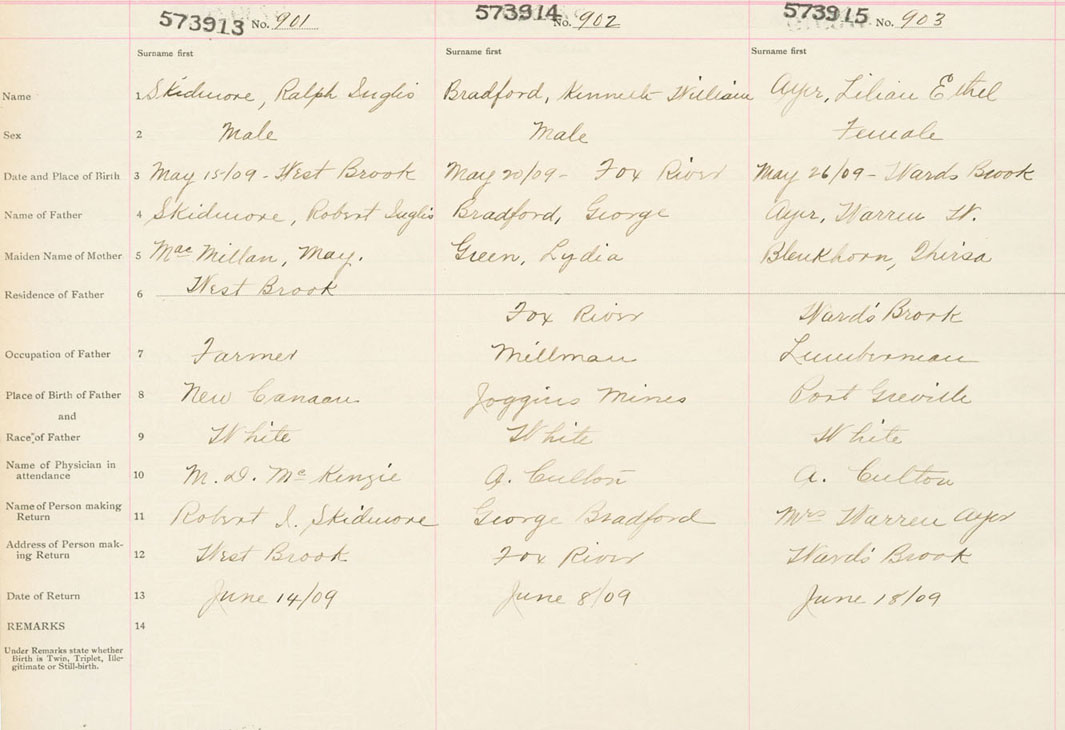 573913 No. 901 573914 No. 902 573915 No. 903
Surname first Surname first Surname first
Name 1 Skidmore, Ralph Inglis Bradford, Kenneth William Ayer, Lilian Ethel
Sex 2 Male Male Female
Date and Place of Birth 3 May 15/09 - West Brook May 20/09 - Fox River May 26/09 - Wards Brook
Name of Father 4 Skidmore, Robert Inglis Bradford, George Ayer, Warren W.
Maiden Name of Mother 5 MacMillan, May. Green, Lydia Blenkhorn, Thirsa
Residence of Father 6 West Brook Fox River Ward's Brook
Occupation of Father 7 Farmer Millman Lumberman
Place of Birth of Father 8 New Canaan Joggins Mines Port Greville
and
Race of Father 9 White White White
Name of Physician in
attendance 10 M. D. McKenzie A. Cullton A. Cullton
Name of Person making
Return 11 Robert I. Skidmore George Bradford Mrs Warren Ayer
Address of Person mak-
ing Return 12 West Brook Fox River Ward's Brook
Date of Return 13 June 14/09 June 8/09 June 18/09
REMARKS 14
Under Remarks state whether
Birth is Twin, Triplet, Ille-
gitimate or Still-birth.